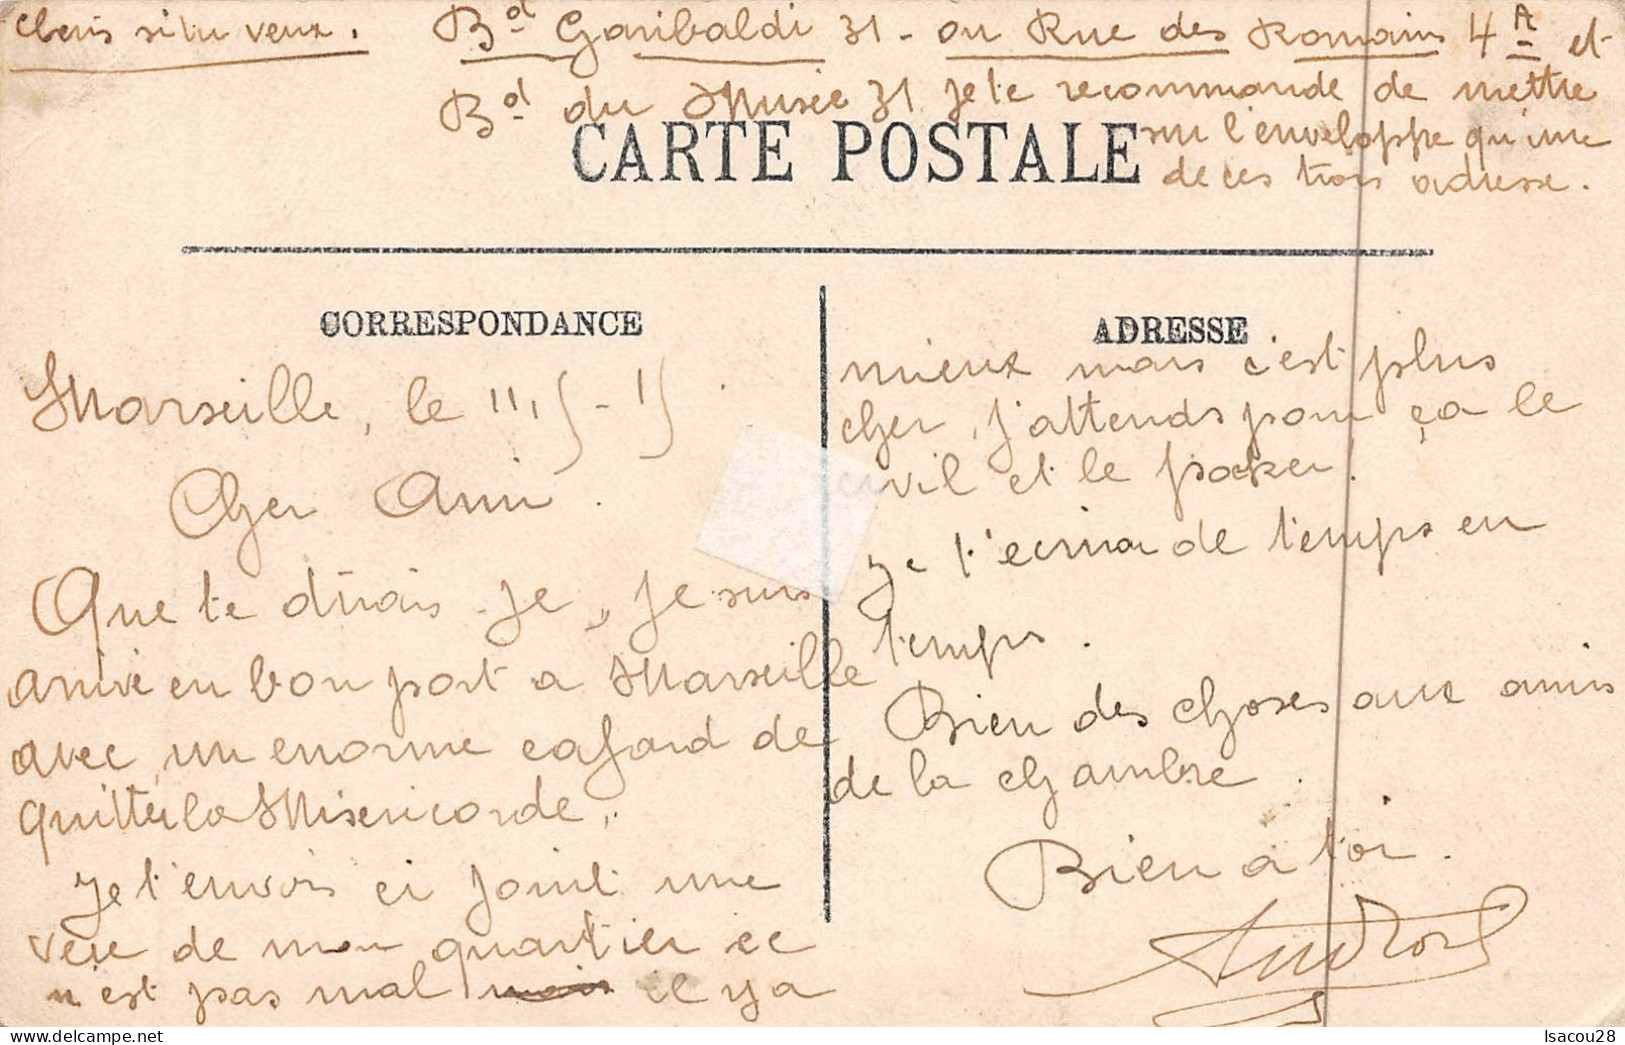 chais si tu veux. Bd Garibaldi 31 - ou Rue des Romains 4 A et
Bd du Musée 31 je te recommande de mettre
sur l'enveloppe qu'une
de ces trois adresse.
CARTE POSTALE
CORRESPONDANCE
Marseille, le
Cher Ami.
Que te dirais-je, je suis
arrivé en bon port a Marseille
avec un enorme cafard de
quitter la Misericorde.
Je t'envois ci joint une
vere de mon quartier ce
n'est pas mal mais il y a
ADRESSE
mieux mais c'est plus
cher, j'attends pour ça le
vil et le poker.
Je t'ecrirai de temps en
temps.
Bien des choses aux amis
de la chambre.
Bien a toi.
Isacou28